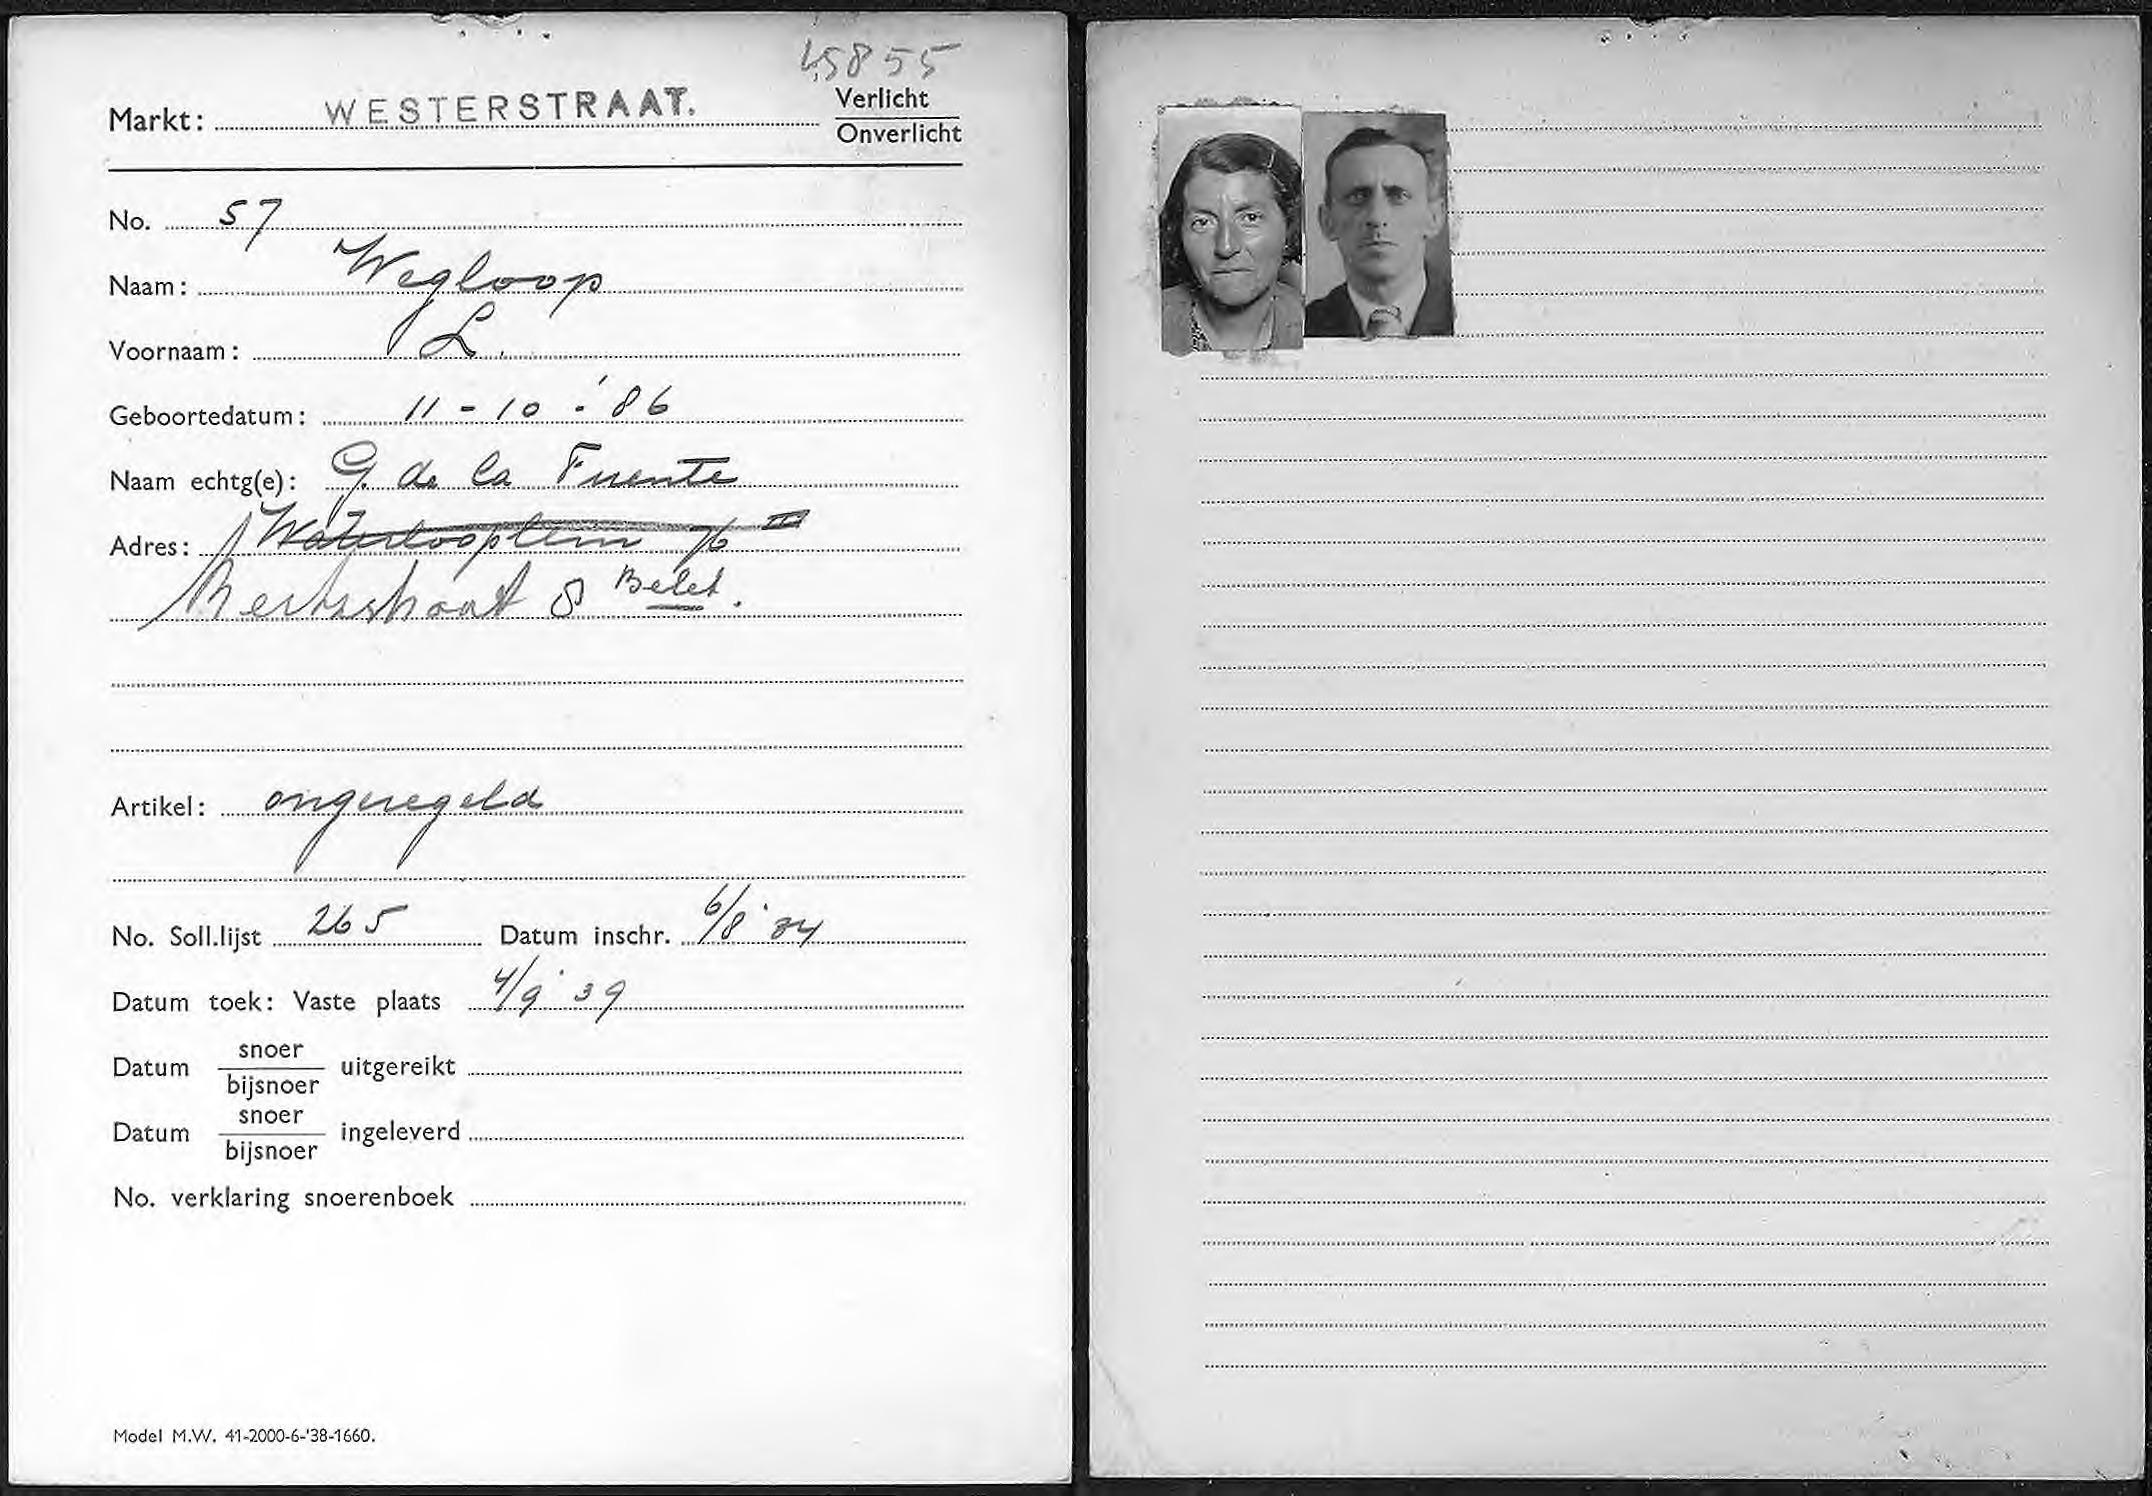 45855
Markt: WESTERSTRAAT. Verlicht
Onverlicht
No. 57
Naam: Wegloop
Voornaam: L.
Geboortedatum: 11-10-'86
Naam echtg(e): G. de la Fuente
Adres: Waterlooplein 76 III
8 Belet.
Artikel: ongeregeld
No. Soll.lijst 265 Datum inschr. 6/8 '34
Datum toek: Vaste plaats 4/9 '39
Datum snoer uitgereikt
bijsnoer
Datum snoer ingeleverd
bijsnoer
No. verklaring snoerenboek
Model M.W. 41-2000-6-'38-1660.